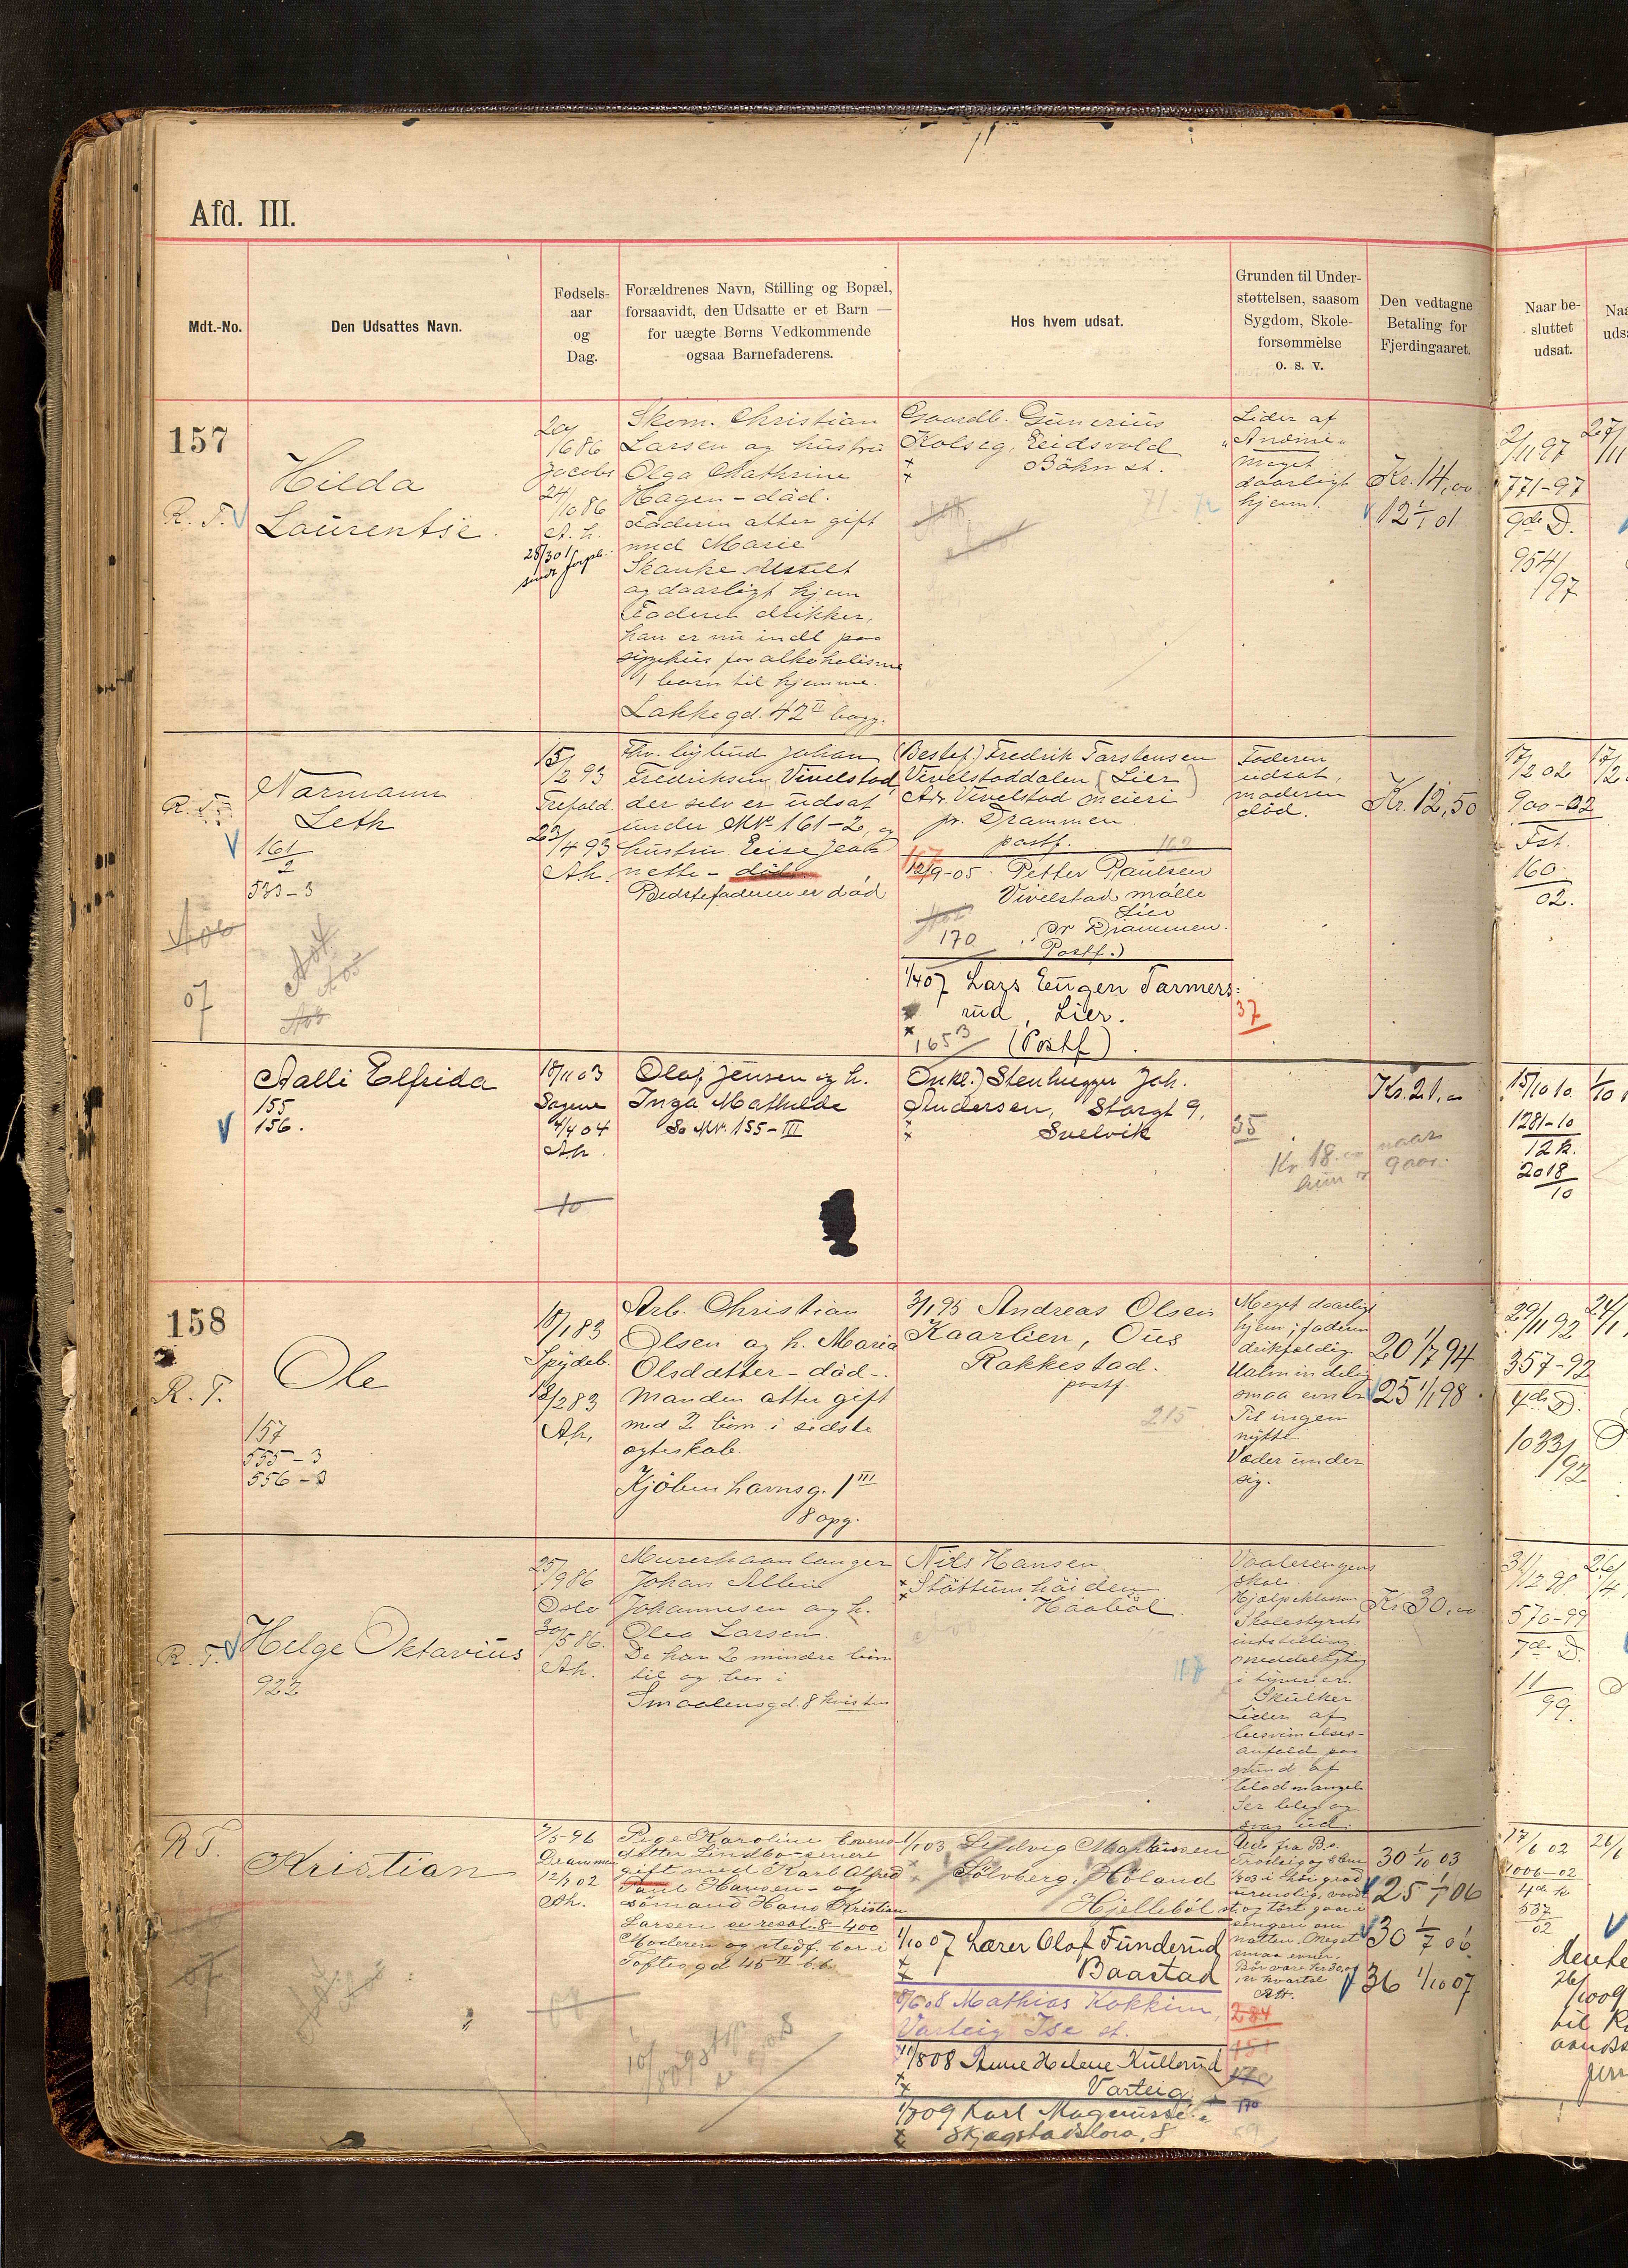 Afd. III.
Mdt.-No.
Den Udsattes Navn.
Fødsels-
aar
og
Dag.
Forældrenes Navn, Stilling og Bopæl,
forsaavidt, den Udsatte er et Barn —
for uægte Børns Vedkommende
ogsaa Barnefaderens.
Hos hvem udsat.
Grunden til Under-
støttelsen, saasom
Sygdom, Skole-
forsømmelse
o. s. v.
Den vedtagne
Betaling for
Fjerdingaaret.
Naar be-
sluttet
udsat.
157
R. T.
Hilda
Laurentse
20/6 86
Jacobs
24/10 86
A. h.
28/3 01
Skom. Christian
Larsen og hustru
Olga Cathrine
Hagen - död.
Faderen atter gift
med Marie
Skanke Usselt
og daarligt hjem
Faderen drikker,
han er nu indl paa
sygehus for alkoholisme
1 barn til hjemme.
Lakkegd. 42 II bagg.
Gaardb. Gunerius
Kolseg, Eidsvold
Böhn st.
Lider af
"Anæmi"
meget
daarligt
hjem.
Kr. 14,00
12 1/1 01
2/11 97
771-97
9de D.
954/97
R. T.
Narmann
Leth
161/2
533-3
07
15/2 93
Trefold.
23/4 93
Ah.
Fhv. bybud Johan
Fredriksen Vivelstad,
der selv er udsat
under MNo 161-2, og
hustru Elise Jean-
nette - död.
Bedstefaderen er död
(Bestef.) Fredrik Torstensen
Vivelstaddalen (Lier)
Adr. Vivelstad meieri
pr. Drammen
postf.
167
12/9-05. Petter Paulsen
Vivelstad mölle
Lier
pr Drammen.
(Postf.)
170
1/4 07 Lars Eugen Tarmers-
rud, Lier.
165 B (Postf).
37
Faderen
udsat,
moderen
död.
Kr. 12,50
17/2 02
900-02
Fst.
160
02.
Aalli Elfrida
155
156.
18/11 03
Sagene
4/4 04
Ah.
10
Olaf Jensen og h.
Inga Mathilde
Se MNr. 155-III
Onkel.) Stenhugger Joh.
Andersen, Storgt 9,
Svelvik
35
Kr. 18.00 naar
hun er 9 aar.
Kr. 21,00
15/10 10.
1281-10
12 k.
2018
10
158
R. T.
Ole
157
555-3
556-3
18/1 83
Spydeb.
18/2 83
Ah.
Arb. Christian
Olsen og h. Maria
Olsdatter - död-.
Manden atter gift
med 2 börn i sidste
egteskab.
Kjöbenhavnsg. 1 III
8 opg.
3/1 95 Andreas Olsen
Kaarlien, Ous
Rakkestad.
postf.
215
Meget daarligt
hjem; faderen
drikfældig.
Ualmindelig
smaa evner
Til ingen
nytte.
Væder under
sig.
20 1/7 94
25 1/1 98
29/11 92
357-92
4de D.
1033/92
R. T.
Helge Oktavius
922
25/9 86
Oslo
30/5 86.
Ah.
Murerhaandlanger
Johan Allin
Johannesen og h.
Olea Larsen.
De har 2 mindre börn
til og bor i
Smaalensgd. 8 kvisten
Nils Hansen
Stöttumhöiden
Haaböl.
118
Vaalerengens
skole.
Hjælpeklassen
Skolestyrets
indstilling.
meddelagtig
i tyverier.
Skulker
Lider af
besvimelses-
anfald paa
grund af
blodmangel
Ser bleg og
svag ud.
Kr 30,00
31/12 98
570-99
7de D.
11/99.
R T.
Kristian
2/5-96
Drammen
12/7 02
Ah.
Pige Karoline Evens-
datter Lindbo - senere
gift med Karl Alfred
Paul Hansen - og
sömand Hans Kristian
Larsen se resol. 8-400
Moderen og stedf. bor i
Toftesgd 45 II b.b.
1/1 03 Ludvig Martinsen
Sölvberg, Höland
Hjelleböl st.
1/10 07 Lærer Olaf Funderud
Baastad
8/6 08 Mathias Kokkim
Varteig Ise st.
11/8 08 Anne Helene Kullerud
Varteig
1/7 09 Karl Magnusse
Skjægstadflora, 8
i höi grad
urenslig,
sengen om
natten. Meget
smaa evner.
Bör være kr 30,00
i kvartal
284
151
170
30 1/10 03
25 1/1 06
30 1/7 06
36 1/10 07
17/6 02
1006-02
4de k
537
02
26/10 09
til